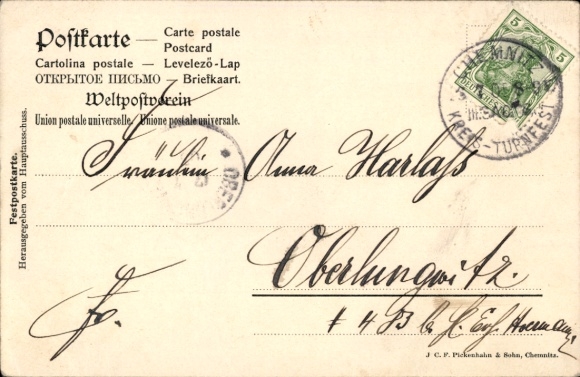 Postkarte — Carte postale
Postcard
Cartolina postale — Levelező-Lap
ОТКРЫТОЕ ПИСЬМО — Briefkaart.
Weltpostverein
Union postale universelle. Unione postale universale.
Festpostkarte.
Herausgegeben vom Hauptausschuss.
5 5
CHEMNITZ
KREIS-TURNFEST
Fräulein Anna Harlaß
Oberlungwitz.
Fr.
J. C. F. Pickenhahn & Sohn, Chemnitz.